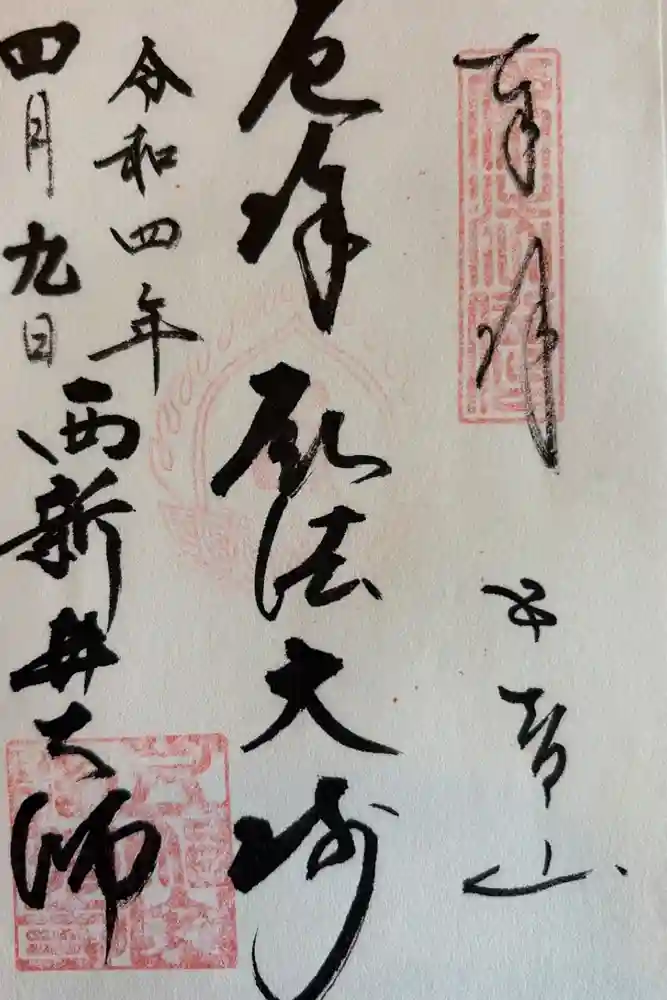 奉拝
五智山
厄除弘法大師
令和四年
四月九日
西新井大師